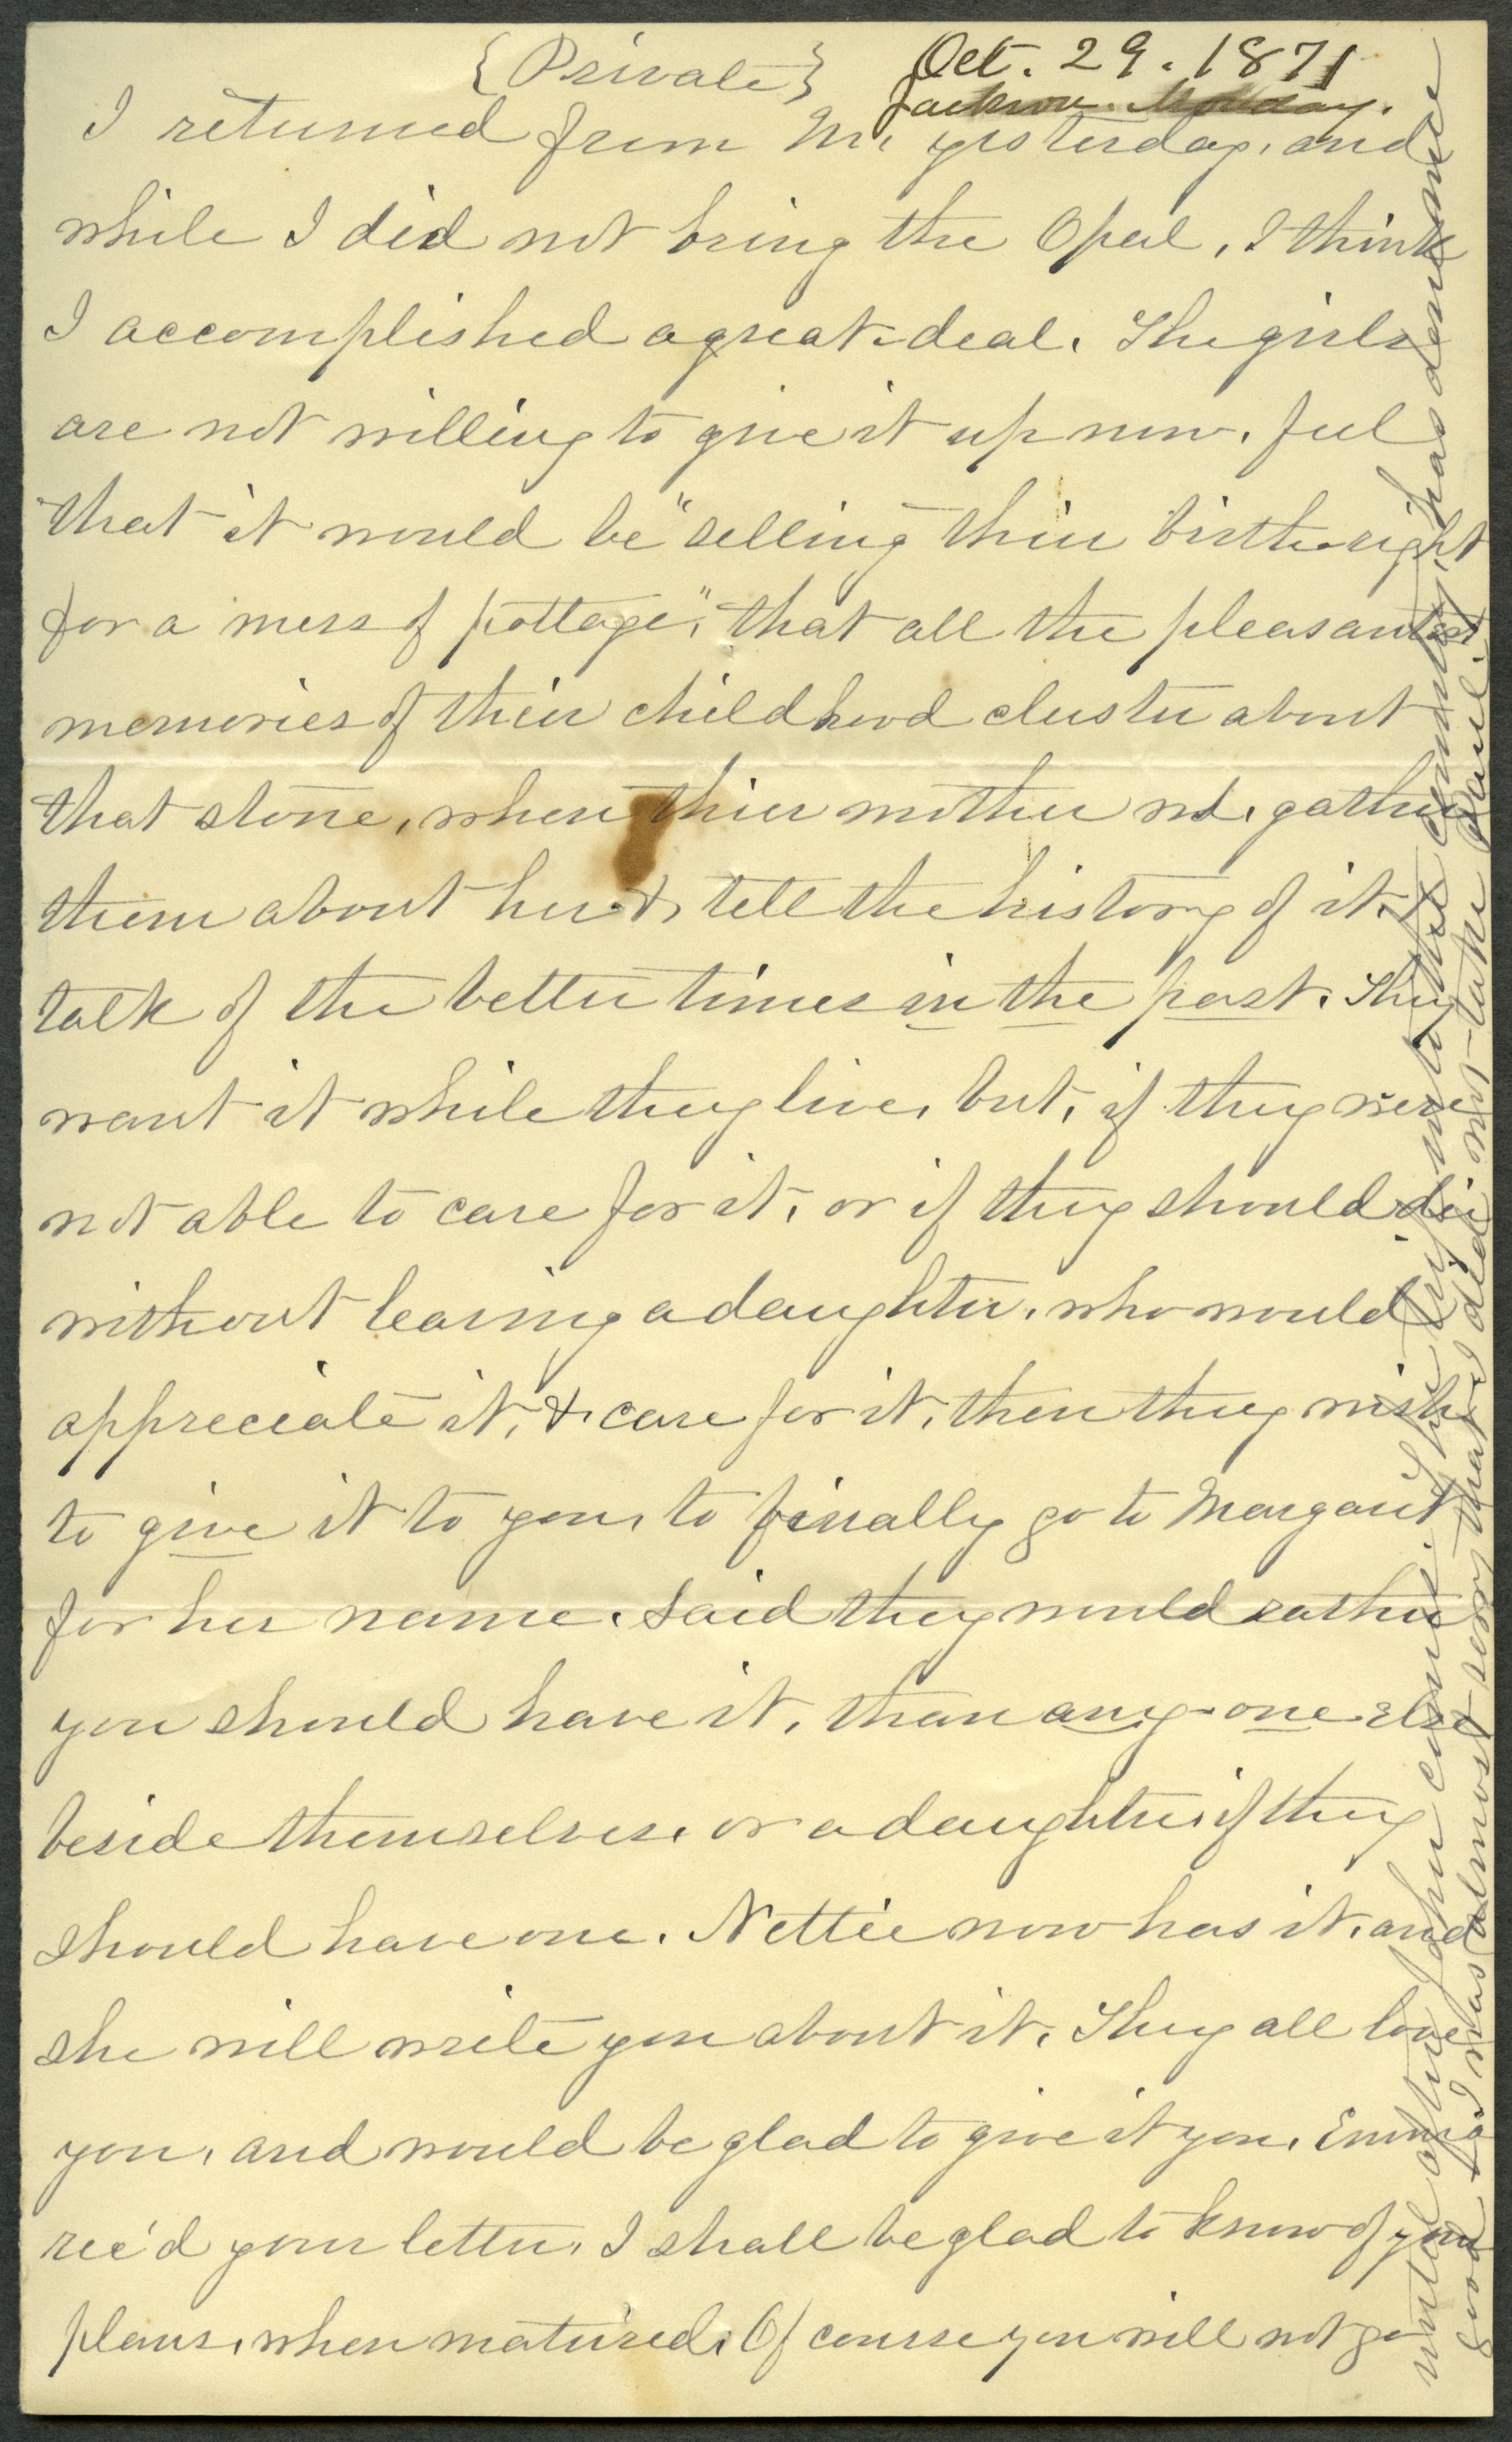 {Private}
Oct. 29. 1871
Jackson. Monday.
I returned from M. yesterday, and
while I did not bring the Opal, I think
I accomplished a great deal. The girls
are not willing to give it up now, feel
that it would be "selling thier birth-right
for a mess of pottage", that all the pleasantest
memories of thier childhood cluster about
that stone, when thier mother wd. gather
them about her & tell the history of it, &
talk of the better times in the past. They
want it while they live, but, if they were
not able to care for it, or if they should die
without leaving a daughter, who would
appreciate it, & care for it, then they wish
to give it to you, to finally go to Margaret
for her name. Said they would rather
you should have it, than any-one else
beside themselves, or a daughter, if they
should have one. Nettie now has it, and
she will write you about it. They all love
you, and would be glad to give it you. Emma
rec'd your letter. I shall be glad to know of your
plans, when matured. Of course you will not go
until after John comes. The trip into the country, has done me
good & I was almost sorry that I did not take Paul.